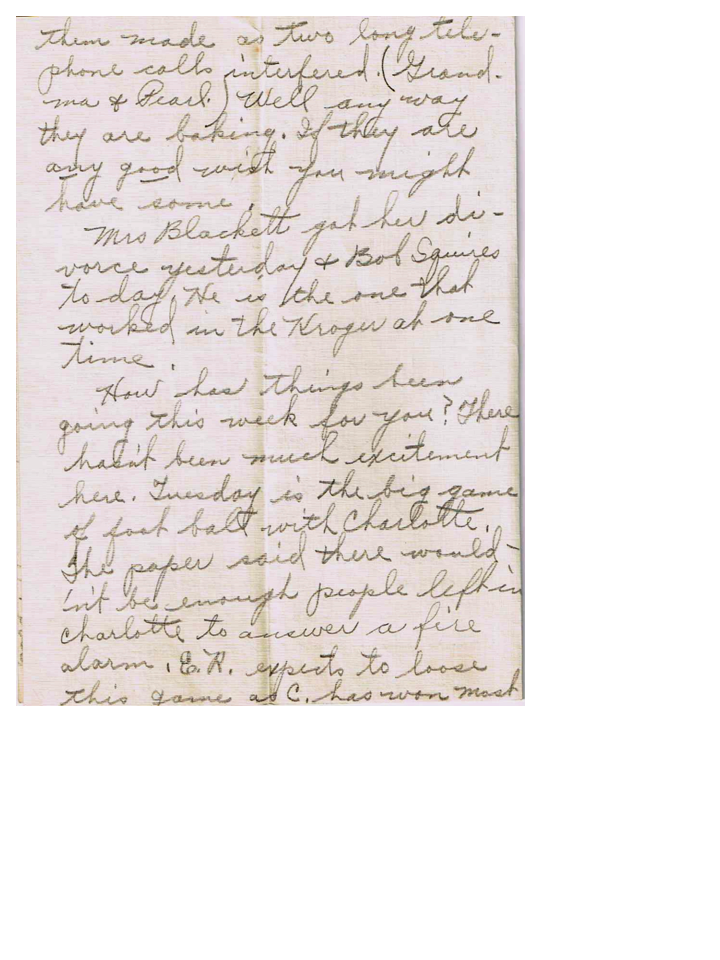 them made as two long tele-
phone calls interfered. (Grand-
ma & Pearl.) Well any way
they are baking. If they are
any good wish you might
have some.
Mrs Blackett got her di-
vorce yesterday & Bob Squires
to day. He is the one that
worked in the Kroger at one
time.
How has things been
going this week for you? There
hasn't been much excitement
here. Tuesday is the big game
of foot ball with Charlotte.
The paper said there would-
in't be enough people left in
Charlotte to answer a fire
alarm. E.R. expects to loose
this game as C. has won most